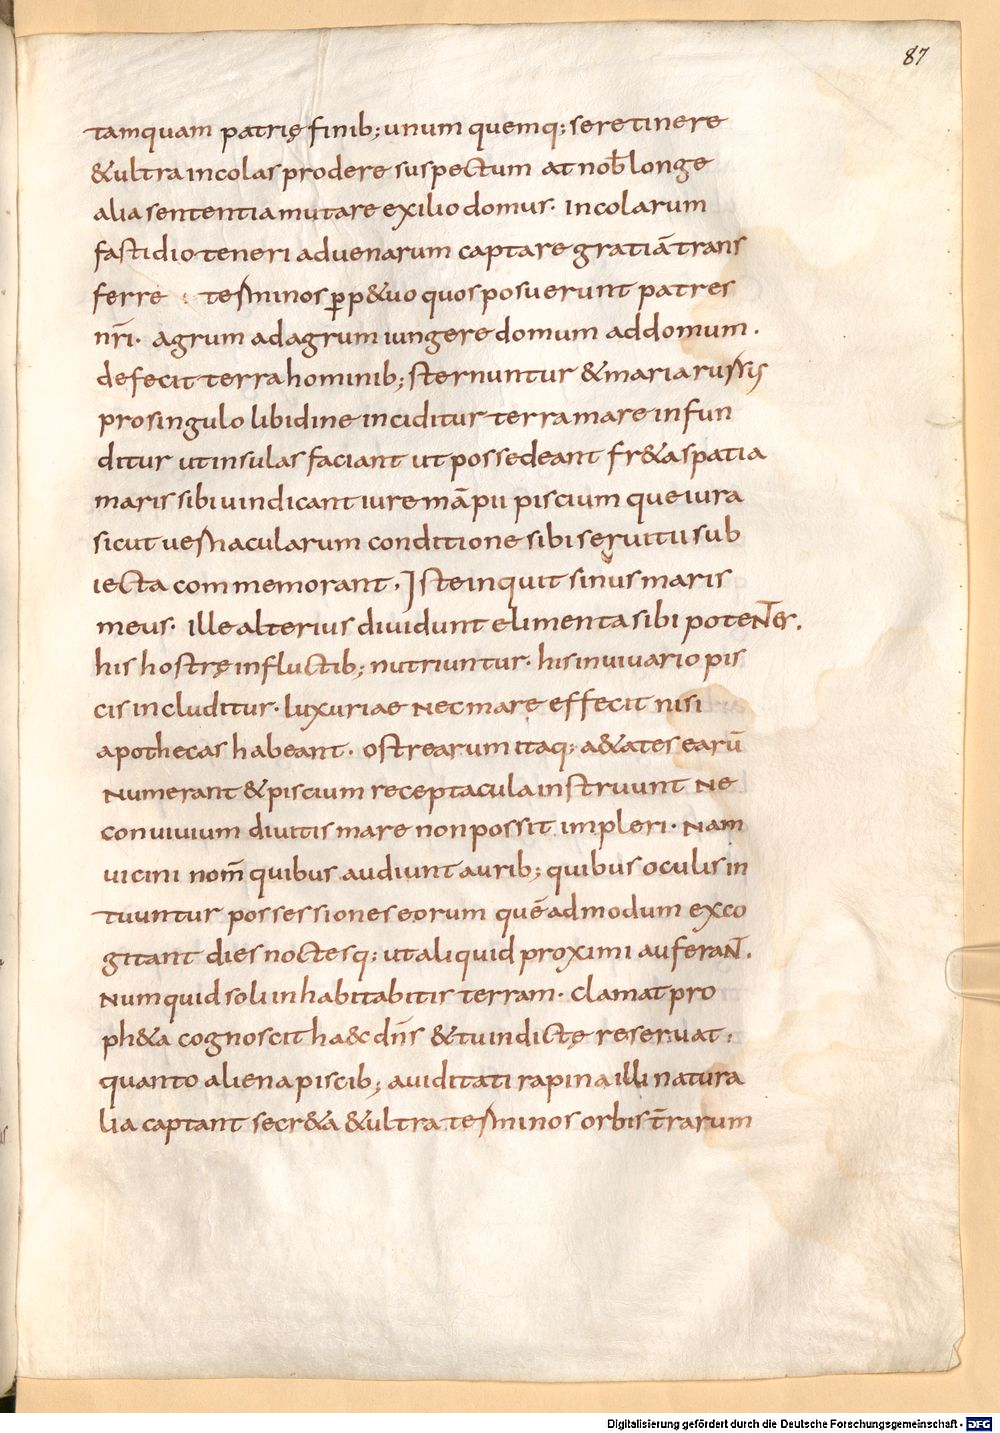 87
tamquam patrię finib; unum quemq; se retinere
& ultra incolas prodere suspectum at nob̄ longe
alia sententia mutare exilio domus. incolarum
fastidio teneri aduenarum captare gratiā trans
ferre : terminos ꝑp&uo quos posuerunt patres
nr̄i. agrum ad agrum iungere domum ad domum.
defecit terra hominib; sternuntur & maria russis
pro singulo libidine inciditur terra mare infun
ditur ut insulas faciant ut possedeant fr&a spatia
maris sibi uindicant iure mācipii piscium que iura
sicut uernacularum conditione sibi seruitii sub
iecta commemorant. Iste inquit sinus maris
meus. ille alterius diuidunt elimenta sibi potenter.
his hostrę in fluctib; nutriuntur. his in uiuario pis
cis includitur. luxuriae nec mare effecit nisi
apothecas habeant. ostrearum itaq; a&ates earū
numerant & piscium receptacula instruunt ne
conuiuium diuitis mare non possit impleri. Nam
uicini nom̄ quibus audiunt aurib; quibus oculis in
tuuntur possessiones eorum quēadmodum exco
gitant dies noctesq; ut aliquid proximi auferant.
Numquid soli inhabitabitis terram. clamat pro
ph&a cognoscit ha&c dn̄s & tu indictę reseruat;
quanto aliena piscib; auiditati rapina illi natura
lia captant secr&a & ultra terminos orbis t̄rarum
Digitalisierung gefördert durch die Deutsche Forschungsgemeinschaft - DFG